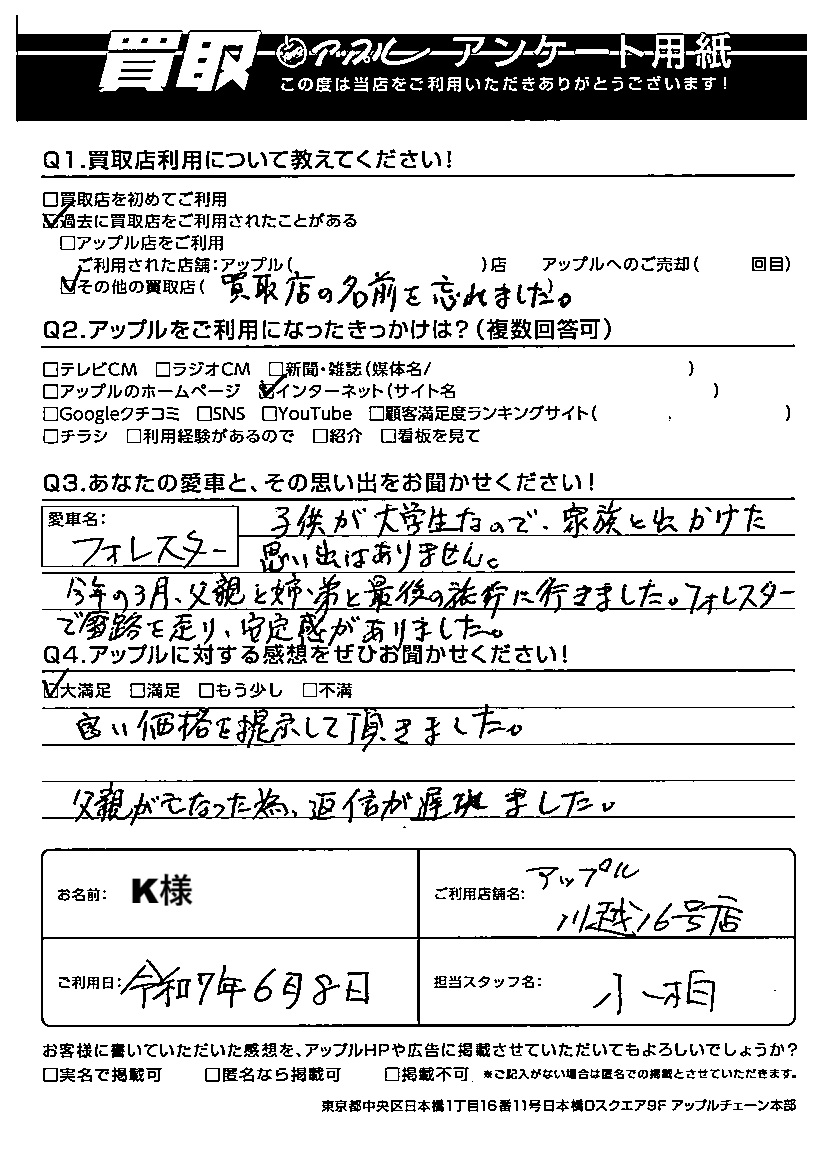 買取 アップル アンケート用紙
この度は当店をご利用いただきありがとうございます!
Q1.買取店利用について教えてください!
□買取店を初めてご利用
☑過去に買取店をご利用されたことがある
□アップル店をご利用
ご利用された店舗:アップル( )店 アップルへのご売却( 回目)
☑その他の買取店( 買取店の名前を忘れました。)
Q2.アップルをご利用になったきっかけは?(複数回答可)
□テレビCM □ラジオCM □新聞・雑誌(媒体名/ )
□アップルのホームページ ☑インターネット(サイト名 )
□Googleクチコミ □SNS □YouTube □顧客満足度ランキングサイト( )
□チラシ □利用経験があるので □紹介 □看板を見て
Q3.あなたの愛車と、その思い出をお聞かせください!
愛車名: 子供が大学生なので、家族と出かけた
フォレスター 思い出はありません。
今年の3月、父親と姉、弟と最後の旅行に行きました。フォレスター
で雪路を走り、安定感がありました。
Q4.アップルに対する感想をぜひお聞かせください!
☑大満足 □満足 □もう少し □不満
良い価格を提示して頂きました。
父親が亡なった為、返信が遅れました。
お名前: K様
ご利用店舗名: アップル
川越16号店
ご利用日: 令和7年6月8日
担当スタッフ名: 小相
お客様に書いていただいた感想を、アップルHPや広告に掲載させていただいてもよろしいでしょうか?
□実名で掲載可 □匿名なら掲載可 □掲載不可 ※ご記入がない場合は匿名での掲載とさせていただきます。
東京都中央区日本橋1丁目16番11号日本橋Dスクエア9F アップルチェーン本部